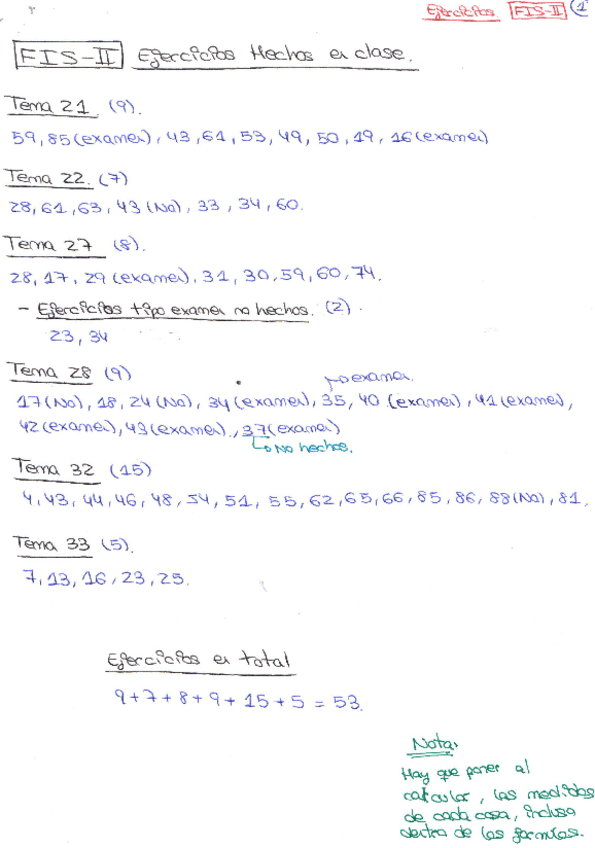 Ejercicios FIS-II 1
FIS-II Ejercicios Hechos en clase.
Tema 21 (9).
59, 85 (examen), 43, 61, 53, 49, 50, 19, 16 (examen)
Tema 22. (7)
28, 61, 63, 43 (No), 33, 34, 60.
Tema 27 (8).
28, 17, 29 (examen), 31, 30, 59, 60, 74.
- Ejercicios tipo examen no hechos. (2).
23, 34
Tema 28 (9)
examen.
17 (No), 18, 24 (No), 34 (examen), 35, 40 (examen), 41 (examen),
42 (examen), 43 (examen), 37 (examen)
No hechos.
Tema 32 (15)
4, 43, 44, 46, 48, 54, 51, 55, 62, 65, 66, 85, 86, 88 (No), 81.
Tema 33 (5).
7, 13, 16, 23, 25.
Ejercicios en total
9+7+8+9+15+5 = 53.
Nota.
Hay que poner al
calcular, las medidas
de cada cosa, incluso
dentro de las formulas.